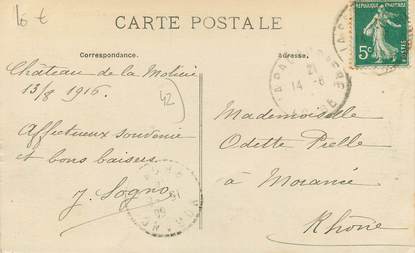 16 €
CARTE POSTALE
Correspondance.
Adresse.
Château de la Motière
13/8 1916.
42
Affectueux souvenir
et bons baisers
J. Sogno
Mademoiselle
Odette Pielle
à Morancé
Rhône
REPUBLIQUE FRANÇAISE
5c
POSTES
21
14 -8